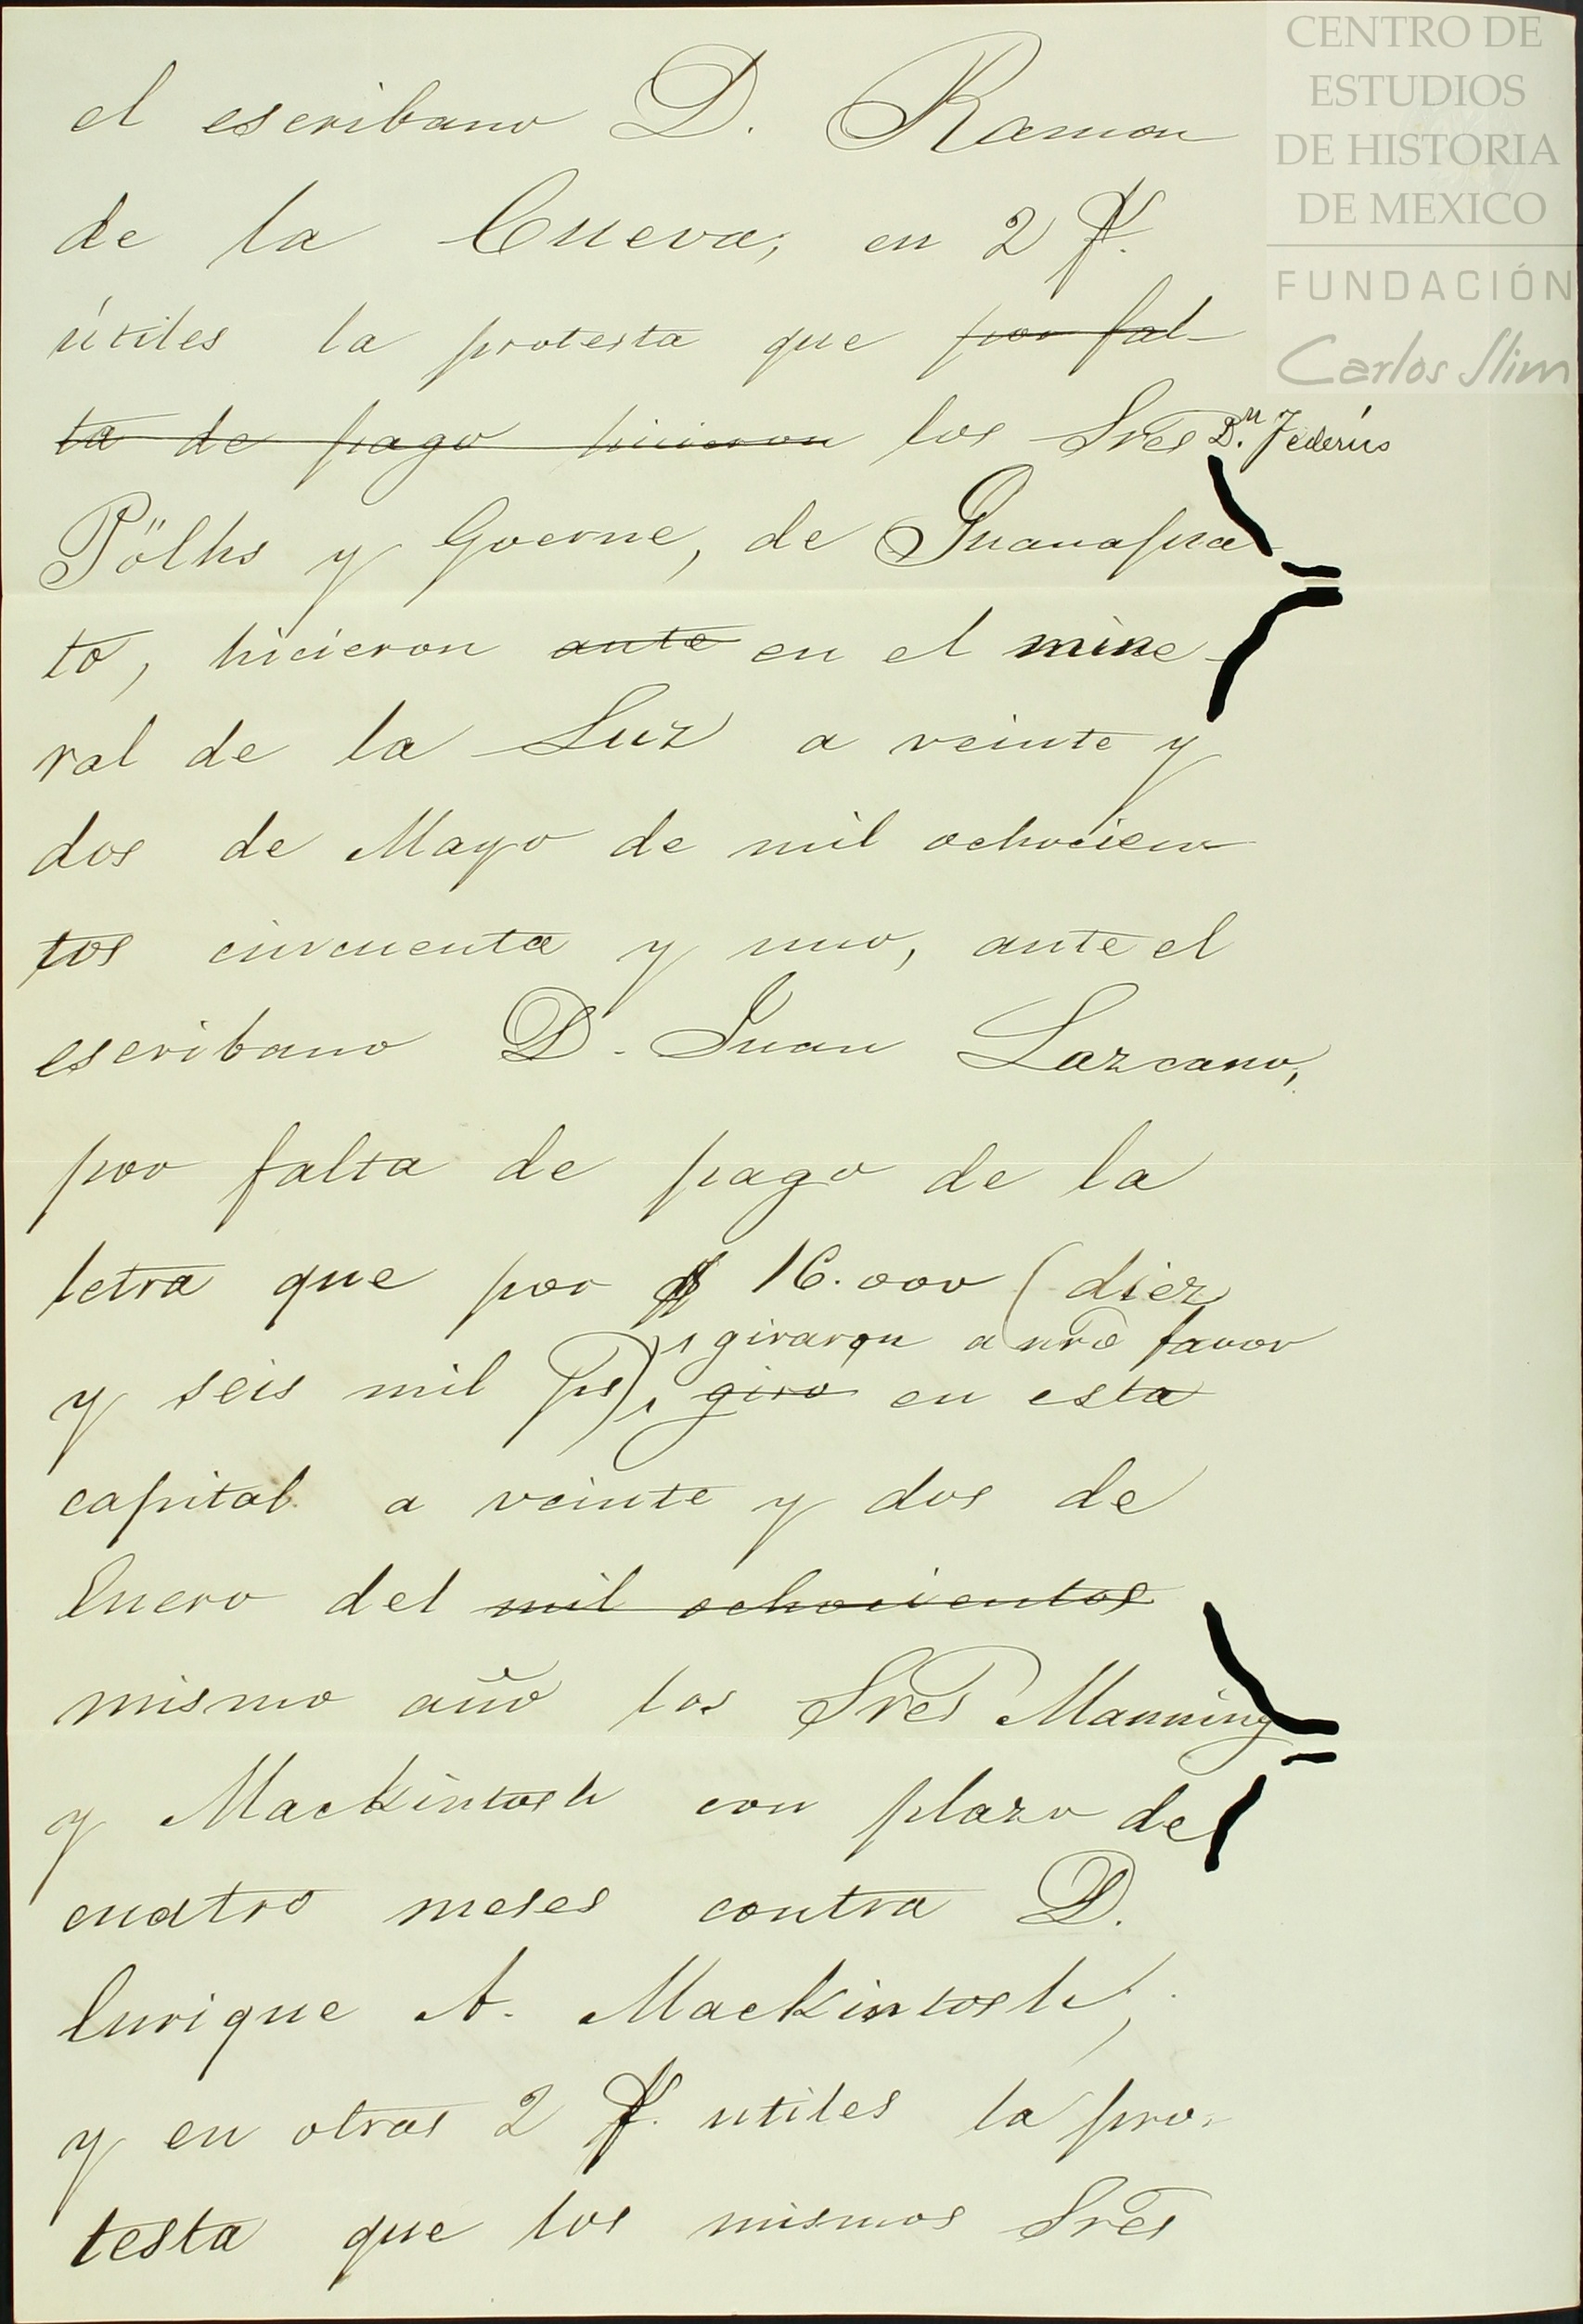 CENTRO DE
ESTUDIOS
DE HISTORIA
DE MEXICO
FUNDACIÓN
Carlos Slim
el escribano D. Ramon
de la Cueva; en 2 f.
útiles la protesta que por fal-
ta de pago hicieron los Sres D.n Federico
Pölhs y Goerne, de Guanajua
to, hicieron ante en el mine-
ral de la Luz a veinte y
dos de Mayo de mil ochocien
tos cincuenta y uno, ante el
escribano D. Juan Lazcano,
por falta de pago de la
letra que por $ 16.000 (diez
giraron a nro favor
y seis mil ps), giro en esta
capital a veinte y dos de
Enero del mil ochocientos
mismo año los Sres Manning
y Mackintosh con plazo de
cuatro meses contra D.
Enrique A. Mackintosh,
y en otras 2 f. utiles la pro-
testa que los mismos Sres